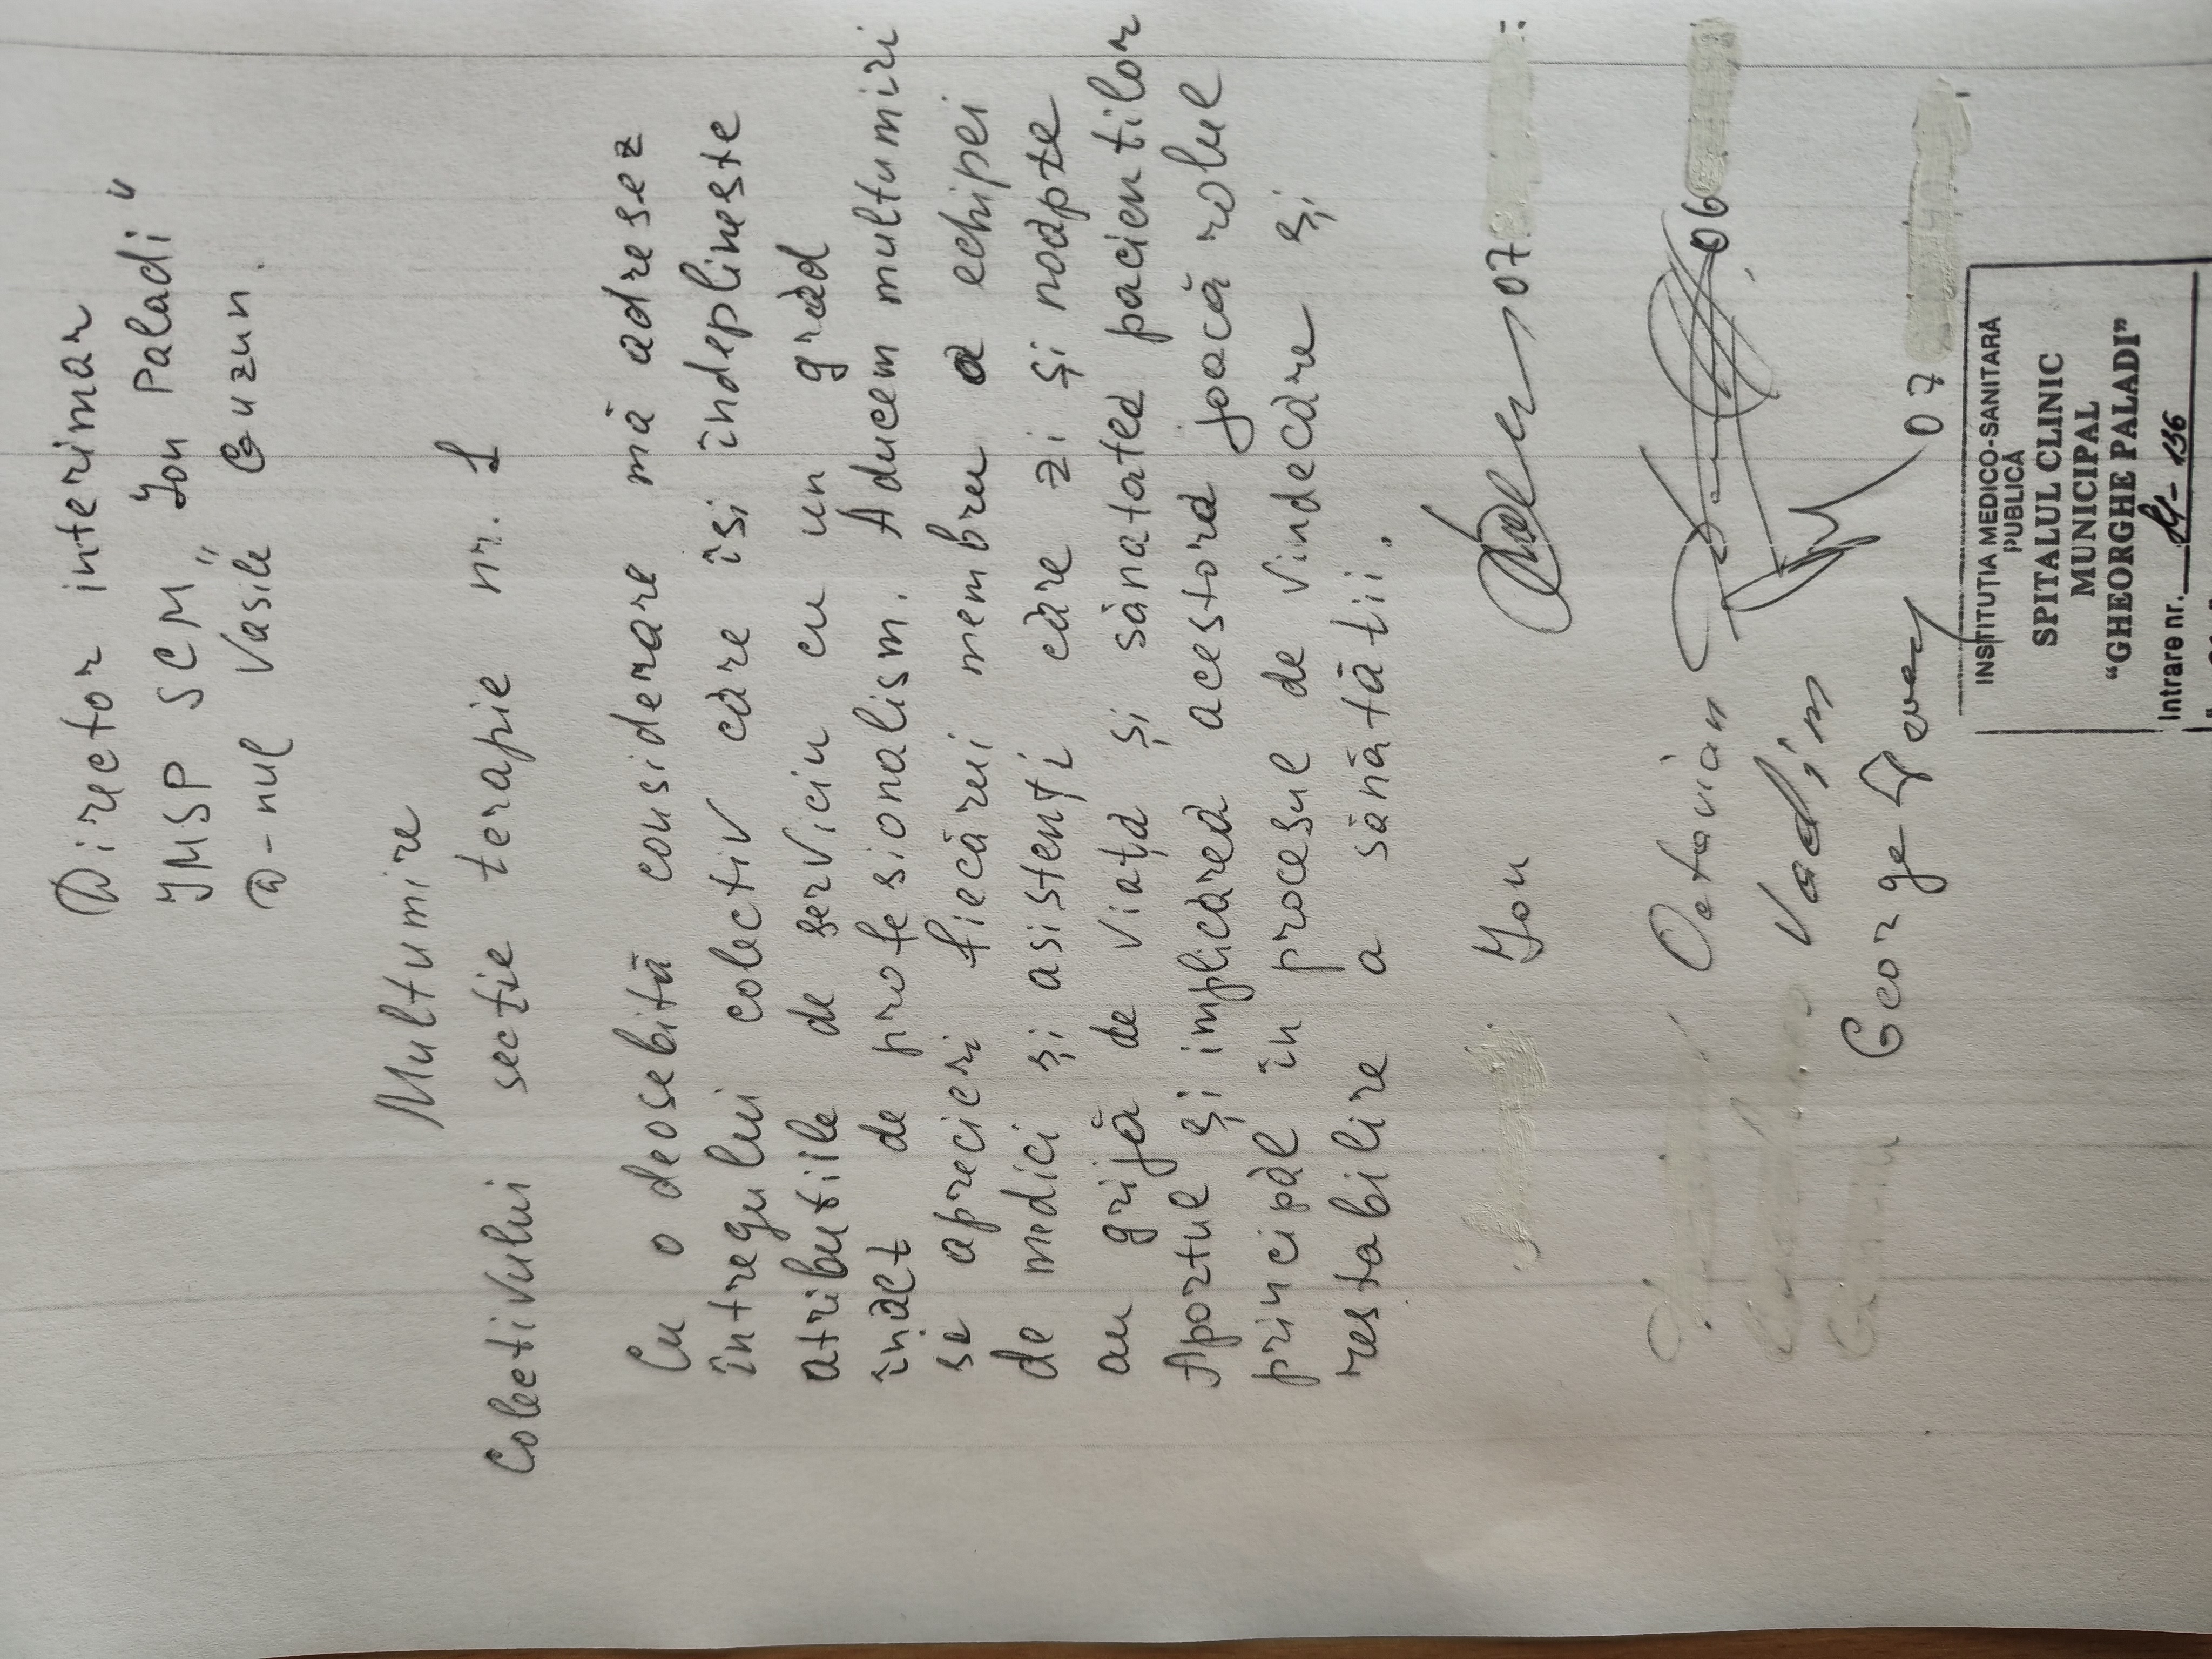 Director interimar
IMSP SCM „Ion Paladi"
D-nul Vasile Guzun.
Multumire
Colectivului sectie terapie nr. 1
Cu o deosebită considerare mă adresez
întregului colectiv care isi îndeplineste
atributiile de serviciu cu un grad
inalt de profesionalism. Aducem multumiri
si aprecieri fiecărui membru a echipei
de medici și asistenți care zi și noapte
au grijă de viața și sănatatea pacientilor
Aportul și implicarea acestora joacă rolul
principal în procesul de vindecare și
restabilire a sănătății.
Ion 07
Octavian 06
Vadim
George 07
INSTITUȚIA MEDICO-SANITARĂ
PUBLICĂ
SPITALUL CLINIC
MUNICIPAL
“GHEORGHE PALADI”
Intrare nr. 136